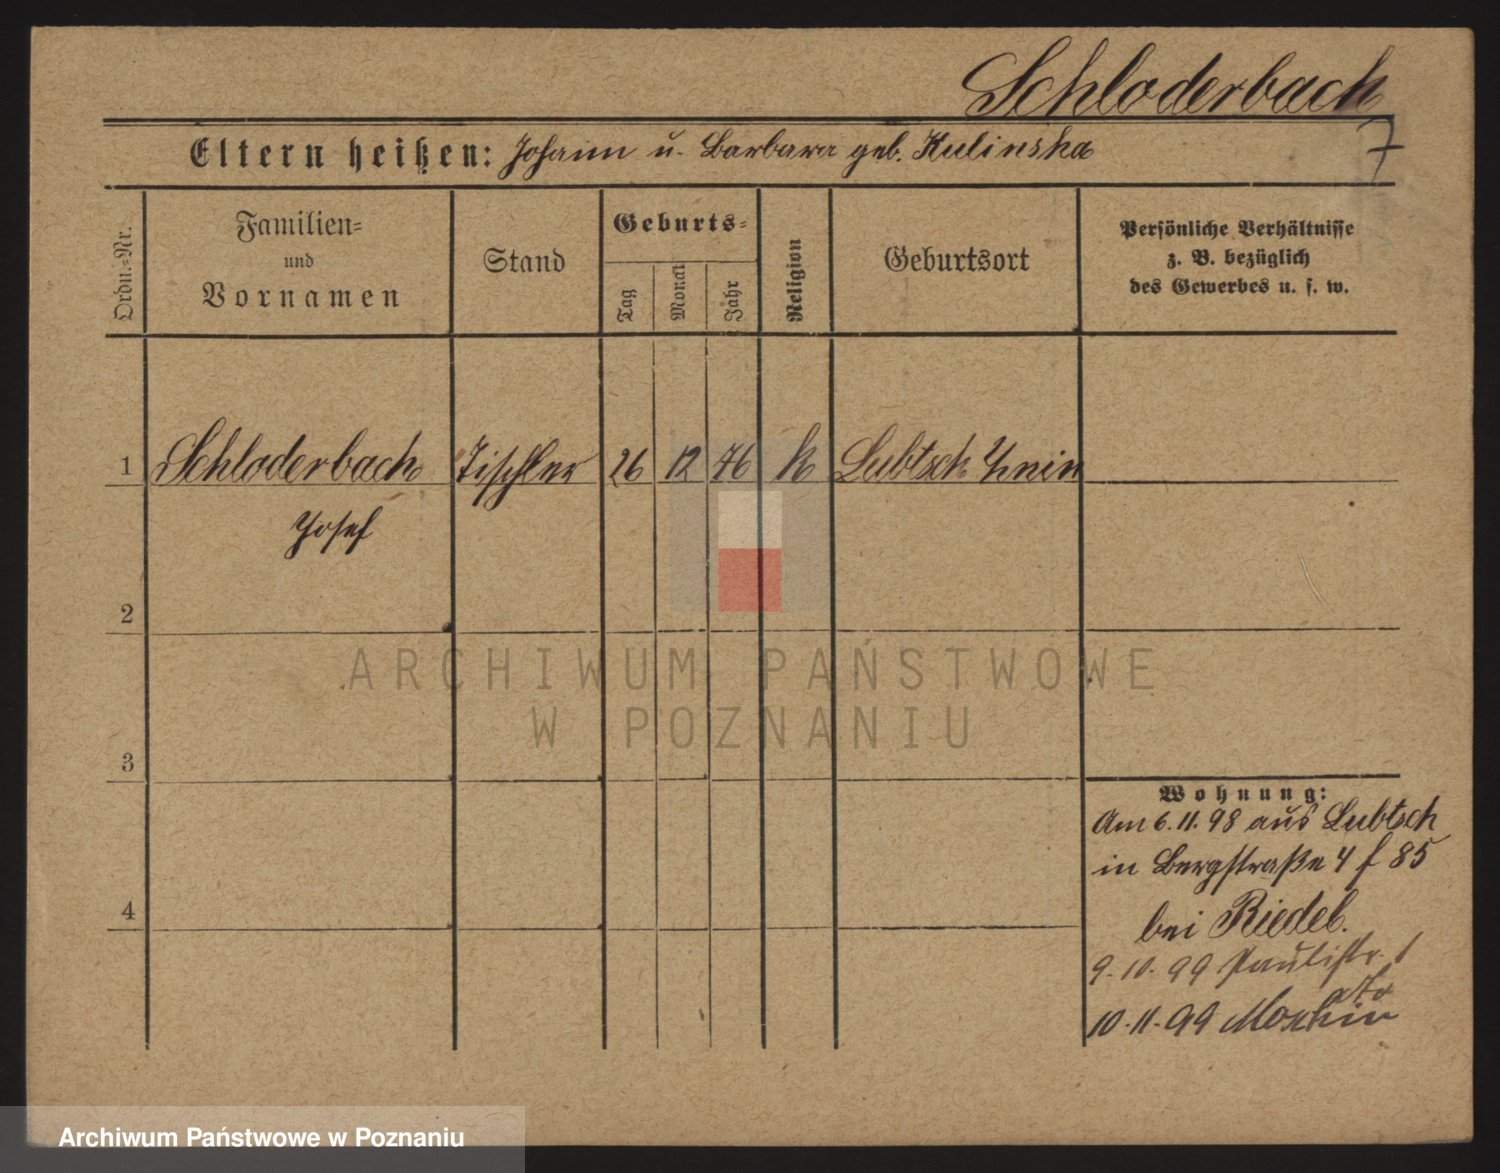 Schloderbach
7
Eltern heißen: Johann u. Barbara geb. Kulinska
Ordn.-Nr.
Familien-
und
Vornamen
Stand
Geburts-
Tag
Monat
Jahr
Religion
Geburtsort
Persönliche Verhältnisse
z. B. bezüglich
des Gewerbes u. s. w.
1 Schloderbach Tischler 26 12 76 k Lubtsch Znin
Josef
2
3
4
Wohnung:
Am 6.11.98 aus Lubtsch
in Bergstraße 4 f 85
bei Riedel.
9.10.99 Paulistr. 1
10.11.99
ARCHIWUM PAŃSTWOWE
W POZNANIU
Archiwum Państwowe w Poznaniu